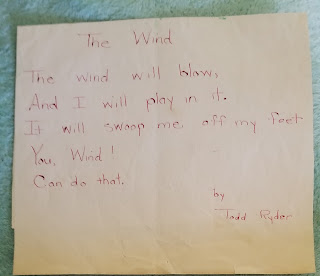 The Wind
The wind will blow,
And I will play in it.
It will swoop me off my feet
You, Wind!
Can do that.
by
Todd Ryder